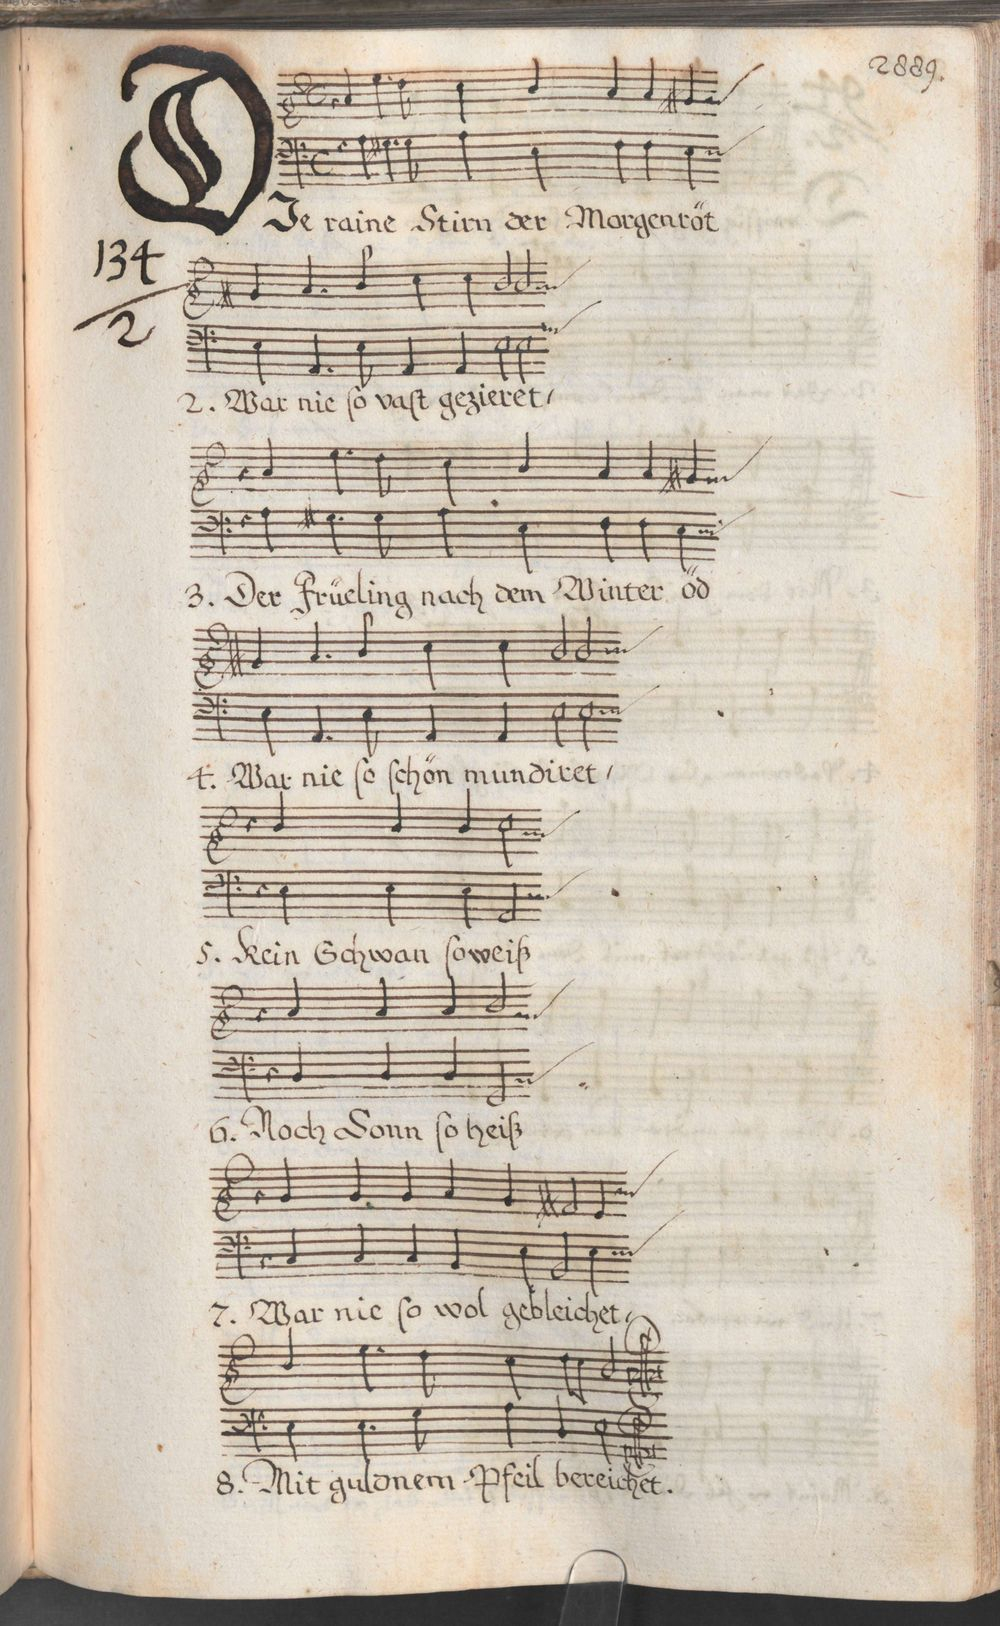 2889.
DIe raine Stirn der Morgenröt
134
2
2. War nie so vast gezieret,
3. Der Früeling nach dem Winter öd
4. War nie so schön mundiret,
5. Kein Schwan soweiß
6. Noch Sonn so heiß
7. War nie so wol gebleichet,
8. Mit guldnem Pfeil bereichet.